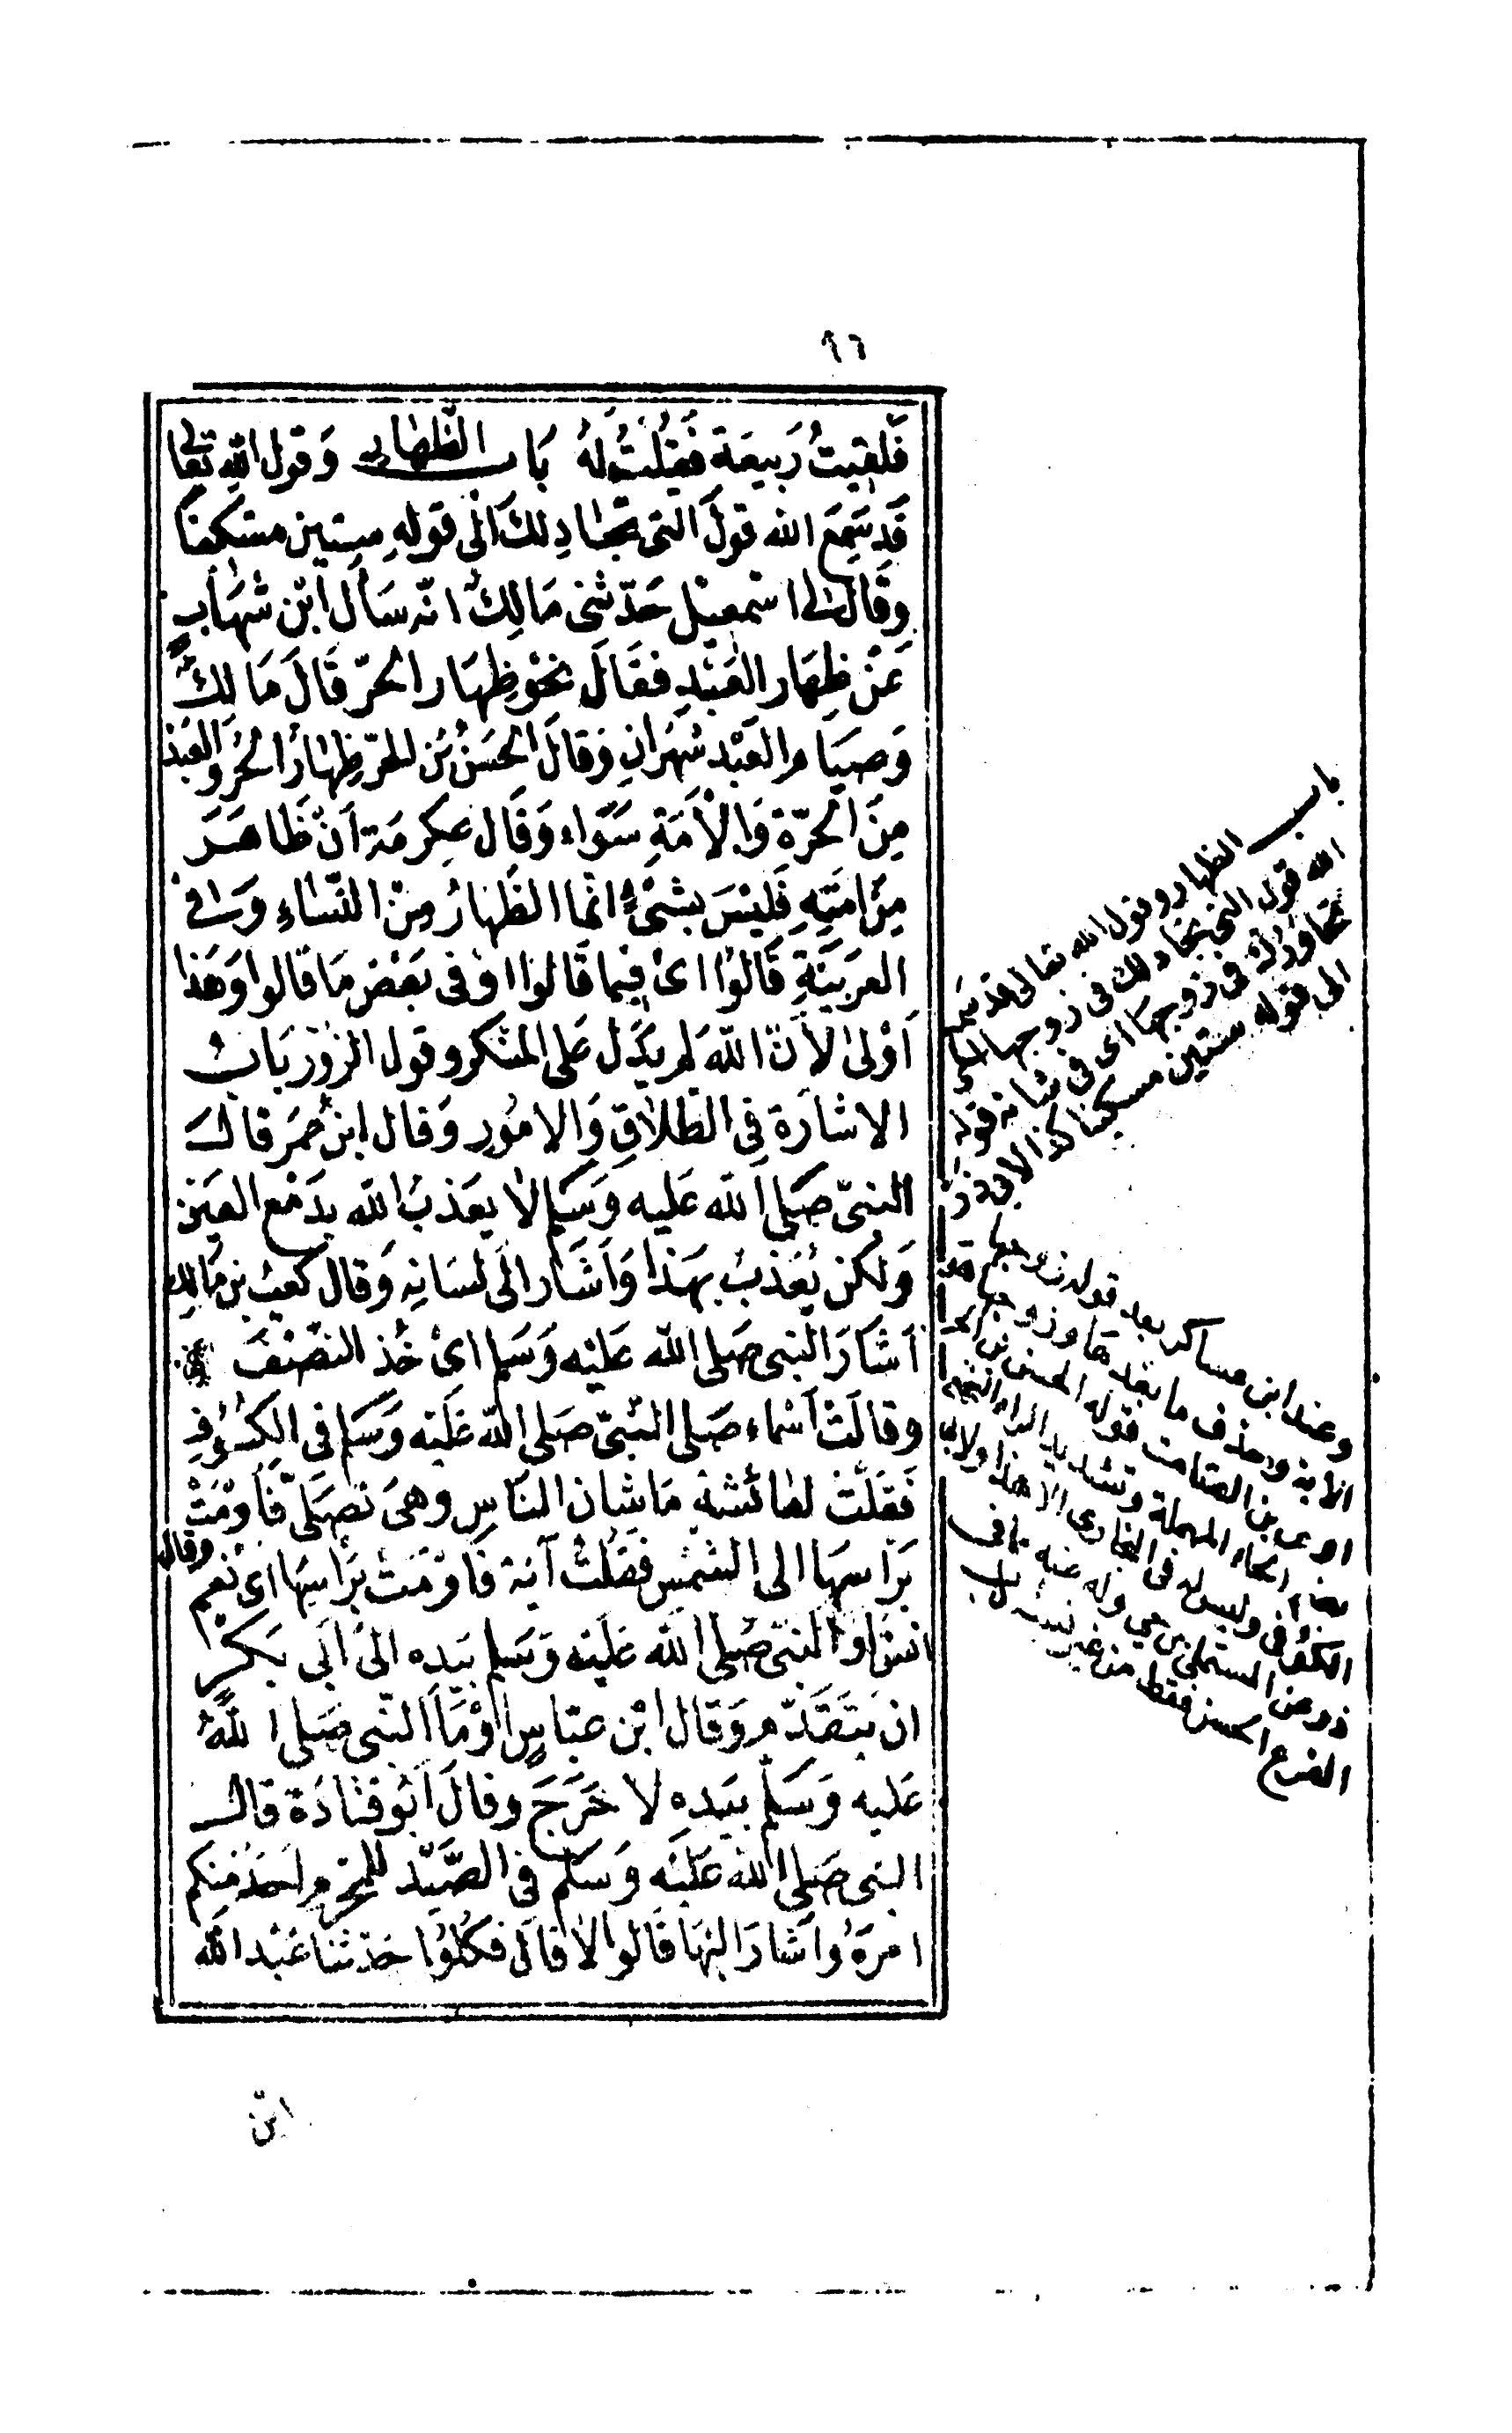 ٩٦
فَلَقِيتُ رَبِيعَة فَقُلْتُ لَهُ بَاب الظّهَارِ وَقول اللهِ تعالى
قَد سَمِعَ الله قولَ التى تجَادِلكَ الى قولِهِ ستين مسْكينًا
وَقَالَ لى اسْمعِيل حَدّثنى مَالِكٌ انّه سَأل ابْن شهَابٍ
عَنْ ظِهَار العَبْدِ فقَالَ نحْو ظِهَار الحرّ قَالَ مَالِكٌ
وَصِيَام العَبْد شهْرانِ وَقالَ الحَسَنُ بْن الحرّ ظِهَارُ الحُرّ والعَبْد
مِنَ الحرّة وَالأمَةِ سَوَاء وَقَال عِكرمَة انْ ظَاهَرَ
مِنْ امَتِهِ فَليْسَ بشىْءٍ انما الظّهَارُ مِنَ النّسَاءِ وَفى
العرَبيّةِ لِما قَالُوْا اىْ فِيما قَالوا اوْ فى بَعْض مَا قالوا وَهَذا
أوْلى لأنّ اللّه لم يَدُل عَلى المنكر وقول الزّور بَابُ
الاشارَة فِى الطّلَاقِ وَالامُور وَقال ابْن عُمَر قالَ
النبىّ صَلى الله عَليه وَسَلم لا يعَذبُ الله بدَمْع العَيْن
وَلكن يُعَذبُ بهَذا وَاَشَار الَى لسَانِهِ وَقال كعْبُ بن مَالِك
اَشَارَ النّبى صَلى الله عَليْه وَسَلم اىْ خُذ النصْفَ
وقالَتْ أسْماء صَلى النّبىّ صَلى الله عَلَيْه وَسَلم فى الكسُوفِ
فَقلْت لعَائشَة مَا شَان النّاسِ وهىَ تصَلى فَأوْمَتْ
بَرأسهَا الى الشمْس فقلْتُ آيَة فَاوْمَتْ بَرأسِهَا اىْ نَعم وقال
انسٌ اوْمأ النّبىّ صَلى الله عَليْه وَسَلم بيَدِه الىَ أبى بَكرٍ
ان يَتَقَدّم وَقال ابْن عبّاسٍ أوْمَأ النّبى صَلى اللّهُ
عَليه وَسَلّم بيَدِه لا حَرَجَ وقالَ أبُو قتَادَة قالَ
النبى صَلى الله عَليْه وَسَلّم فى الصَّيْد للمحْرم احَدٌ منكم
امرَهُ وأشارَ اليْهَا قالوا لا قالَ فكلُوا حَدّثنا عَبْد الله
ابْن
باب الظهار وقول الله تعالى قد سمع
الله قول التى تجادلك فى زوجها اى
تحاورك فى زوجها اى فى شانه قوله
الى قوله ستين مسكينا كذا لابى ذر
وعند ابن عساكر بعد قوله زوجها
الاية وحذف ما بعدها وزوجها هو
اوس بن الصامت قوله الحسن بن الحر
بضم الحاء المهملة وتشديد الراء النخعى
الكوفى وليس له فى البخارى الا هذا ولابى
ذر عن المستملى بن حى وله عنه كما فى
الفرع الحسن فقط من غير نسب